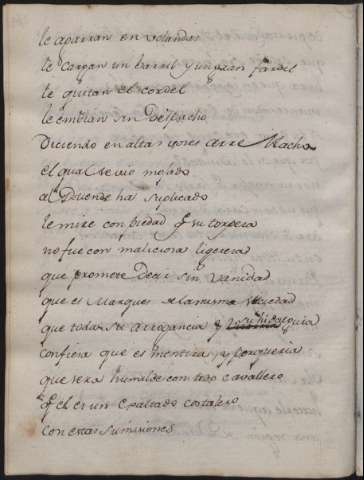 le aparran en volandas
le cargan un barril y un gran fardil
le quitan el cordel
le embian sin Despacho
Diciendo en altas voces arre Macho
el qual se vio mojado
al Duende ha suplicado
le mire con piedad q su torpeza
no fue con maliciosa ligereza
que promete Decir sin vanidad
que el Marques es la misma Vaciedad
que toda su arrogancia y hidalguia
confiesa que es mentira, y porqueria
que sera humilde con todo Cavallero
q el es un exaltado costalero
con estas sumisiones